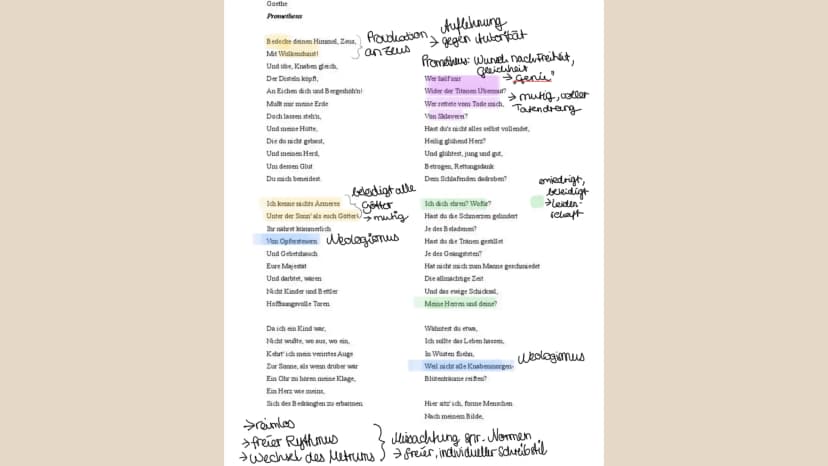 Goethe
Prometheus
Bedecke deinen Himmel, Zeus,
Mit Wolkendunst!
Und übe, Knaben gleich,
Der Disteln köpft,
An Eichen dich und Bergeshöh'n!
Mußt mir meine Erde
Doch lassen steh'n,
Und meine Hütte,
Die du nicht gebaut,
Und meinen Herd,
Um dessen Glut
Du mich beneidest.
Provokation
an Zeus
Auflehnung
→ gegen Autorität
Ich kenne nichts Ärmeres
Unter der Sonn' als euch Götter!
Ihr nähret kümmerlich
Von Opfersteuern
Und Gebetshauch
Eure Majestät
Und darbtet, wären
Nicht Kinder und Bettler
Hoffnungsvolle Toren.
beleidigt alle
Götter
→ mutig
Neologismus
Da ich ein Kind war,
Nicht wußte, wo aus, wo ein,
Kehrt' ich mein verirrtes Auge
Zur Sonne, als wenn drüber wär
Ein Ohr zu hören meine Klage,
Ein Herz wie meins,
Sich des Bedrängten zu erbarmen.
Prometheus: Wunsch nach Freiheit,
Gleichheit
→ "Genie"
Wer half mir
Wider der Titanen Übermut?
Wer rettete vom Tode mich,
Von Sklaverei?
Hast du's nicht alles selbst vollendet,
Heilig glühend Herz?
Und glühtest, jung und gut,
Betrogen, Rettungsdank
Dem Schlafenden dadroben?
→ mutig, voller
Tatendrang
Ich dich ehren? Wofür?
Hast du die Schmerzen gelindert
Je des Beladenen?
Hast du die Tränen gestillet
Je des Geängsteten?
Hat nicht mich zum Manne geschmiedet
Die allmächtige Zeit
Und das ewige Schicksal,
Meine Herren und deine?
erniedrigt,
beleidigt
→ Leiden-
schaft
Wähntest du etwa,
Ich sollte das Leben hassen,
In Wüsten fliehn,
Weil nicht alle Knabenmorgen-
Blütenträume reiften?
Neologismus
Hier sitz' ich, forme Menschen
Nach meinem Bilde,
→ reimlos
→ freier Rythmus
→ Wechsel des Metrums
Missachtung spr. Normen
→ freier, individueller Schreibstil